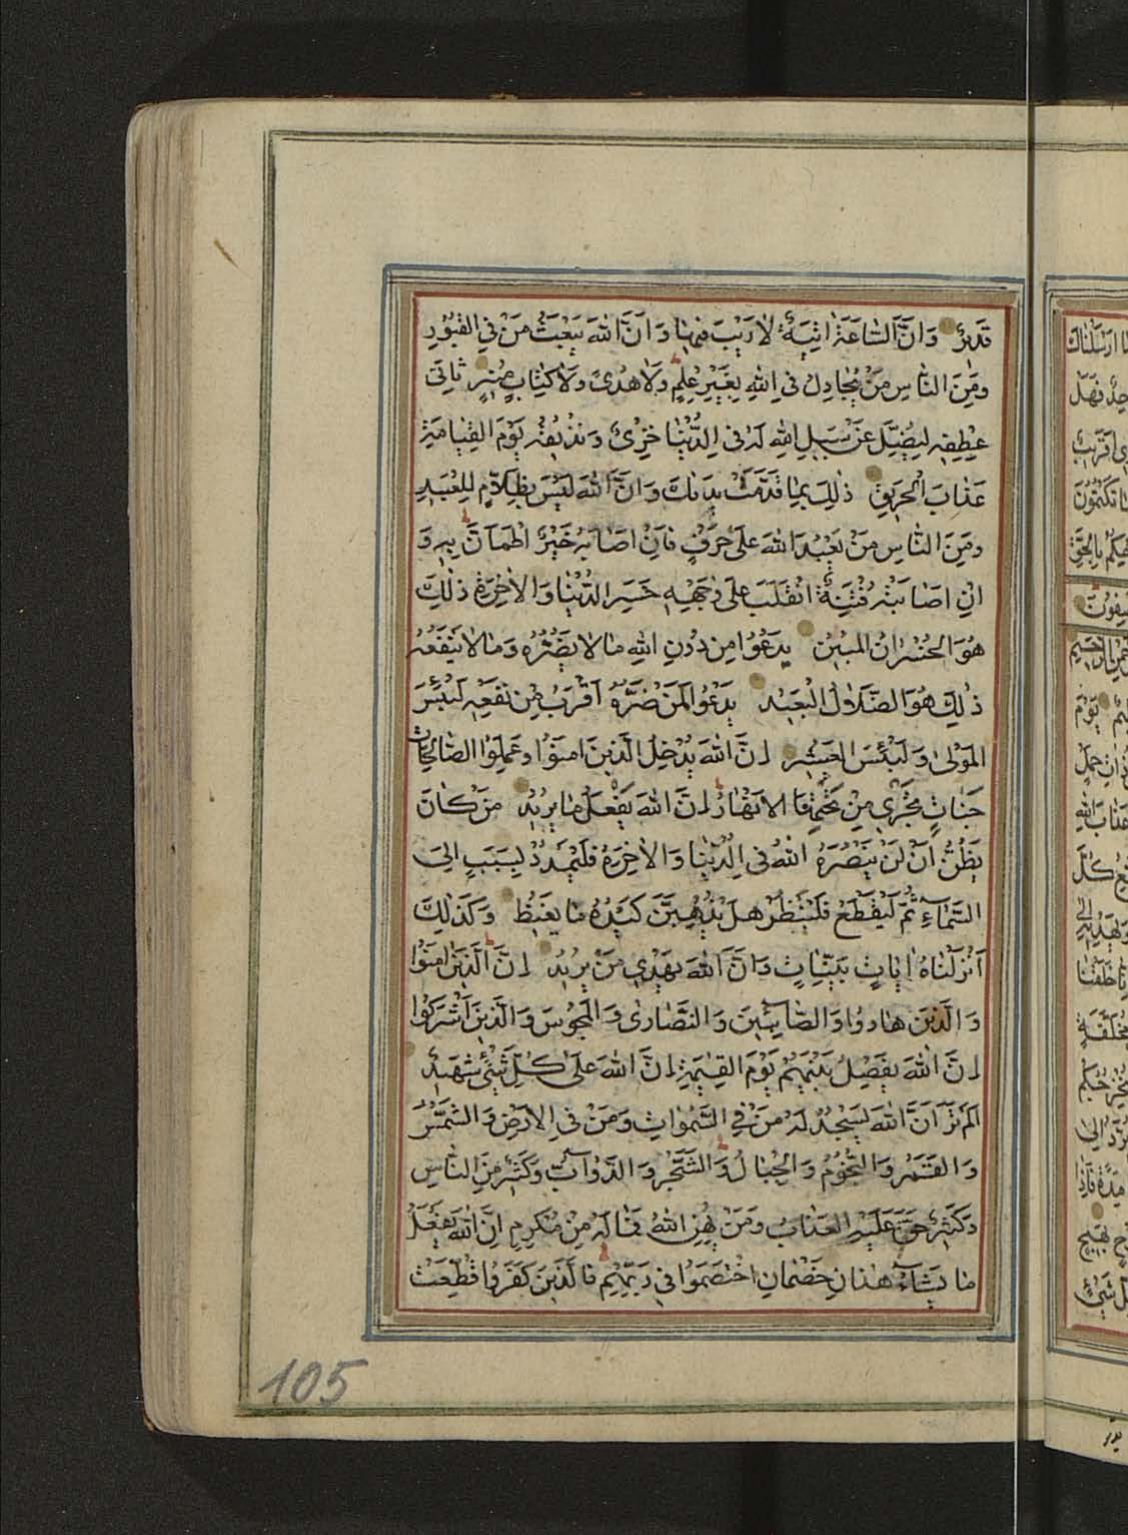 قَدِيرٌ وَاَنَّ السَّاعَةَ اٰتِيَةٌ لَا رَيْبَ فِيهَا وَاَنَّ اللّٰهَ يَبْعَثُ مَنْ فِي الْقُبُورِ
وَمِنَ النَّاسِ مَنْ يُجَادِلُ فِي اللّٰهِ بِغَيْرِ عِلْمٍ وَلَا هُدًى وَلَا كِتَابٍ مُنِيرٍ ثَانِيَ
عِطْفِهِ لِيُضِلَّ عَنْ سَبِيلِ اللّٰهِ لَهُ فِي الدُّنْيَا خِزْيٌ وَنُذِيقُهُ يَوْمَ الْقِيَامَةِ
عَذَابَ الْحَرِيقِ ذٰلِكَ بِمَا قَدَّمَتْ يَدَاكَ وَاَنَّ اللّٰهَ لَيْسَ بِظَلَّامٍ لِلْعَبِيدِ
وَمِنَ النَّاسِ مَنْ يَعْبُدُ اللّٰهَ عَلٰى حَرْفٍ فَاِنْ اَصَابَهُ خَيْرٌ اطْمَاَنَّ بِهِ وَ
اِنْ اَصَابَتْهُ فِتْنَةٌ انْقَلَبَ عَلٰى وَجْهِهِ خَسِرَ الدُّنْيَا وَالْاٰخِرَةَ ذٰلِكَ
هُوَ الْخُسْرَانُ الْمُبِينُ يَدْعُوا مِنْ دُونِ اللّٰهِ مَا لَا يَضُرُّهُ وَمَا لَا يَنْفَعُهُ
ذٰلِكَ هُوَ الضَّلَالُ الْبَعِيدُ يَدْعُوا لَمَنْ ضَرُّهُ اَقْرَبُ مِنْ نَفْعِهِ لَبِئْسَ
الْمَوْلٰى وَلَبِئْسَ الْعَشِيرُ اِنَّ اللّٰهَ يُدْخِلُ الَّذِينَ اٰمَنُوا وَعَمِلُوا الصَّالِحَاتِ
جَنَّاتٍ تَجْرِي مِنْ تَحْتِهَا الْاَنْهَارُ اِنَّ اللّٰهَ يَفْعَلُ مَا يُرِيدُ مَنْ كَانَ
يَظُنُّ اَنْ لَنْ يَنْصُرَهُ اللّٰهُ فِي الدُّنْيَا وَالْاٰخِرَةِ فَلْيَمْدُدْ بِسَبَبٍ اِلَى
السَّمَآءِ ثُمَّ لْيَقْطَعْ فَلْيَنْظُرْ هَلْ يُذْهِبَنَّ كَيْدُهُ مَا يَغِيظُ وَكَذٰلِكَ
اَنْزَلْنَاهُ اٰيَاتٍ بَيِّنَاتٍ وَاَنَّ اللّٰهَ يَهْدِي مَنْ يُرِيدُ اِنَّ الَّذِينَ اٰمَنُوا
وَالَّذِينَ هَادُوا وَالصَّابِئِينَ وَالنَّصَارٰى وَالْمَجُوسَ وَالَّذِينَ اَشْرَكُوا
اِنَّ اللّٰهَ يَفْصِلُ بَيْنَهُمْ يَوْمَ الْقِيٰمَةِ اِنَّ اللّٰهَ عَلٰى كُلِّ شَيْءٍ شَهِيدٌ
اَلَمْ تَرَ اَنَّ اللّٰهَ يَسْجُدُ لَهُ مَنْ فِي السَّمٰوَاتِ وَمَنْ فِي الْاَرْضِ وَالشَّمْسُ
وَالْقَمَرُ وَالنُّجُومُ وَالْجِبَالُ وَالشَّجَرُ وَالدَّوَآبُّ وَكَثِيرٌ مِنَ النَّاسِ
وَكَثِيرٌ حَقَّ عَلَيْهِ الْعَذَابُ وَمَنْ يُهِنِ اللّٰهُ فَمَا لَهُ مِنْ مُكْرِمٍ اِنَّ اللّٰهَ يَفْعَلُ
مَا يَشَآءُ هٰذَانِ خَصْمَانِ اخْتَصَمُوا فِي رَبِّهِمْ فَالَّذِينَ كَفَرُوا قُطِّعَتْ
105